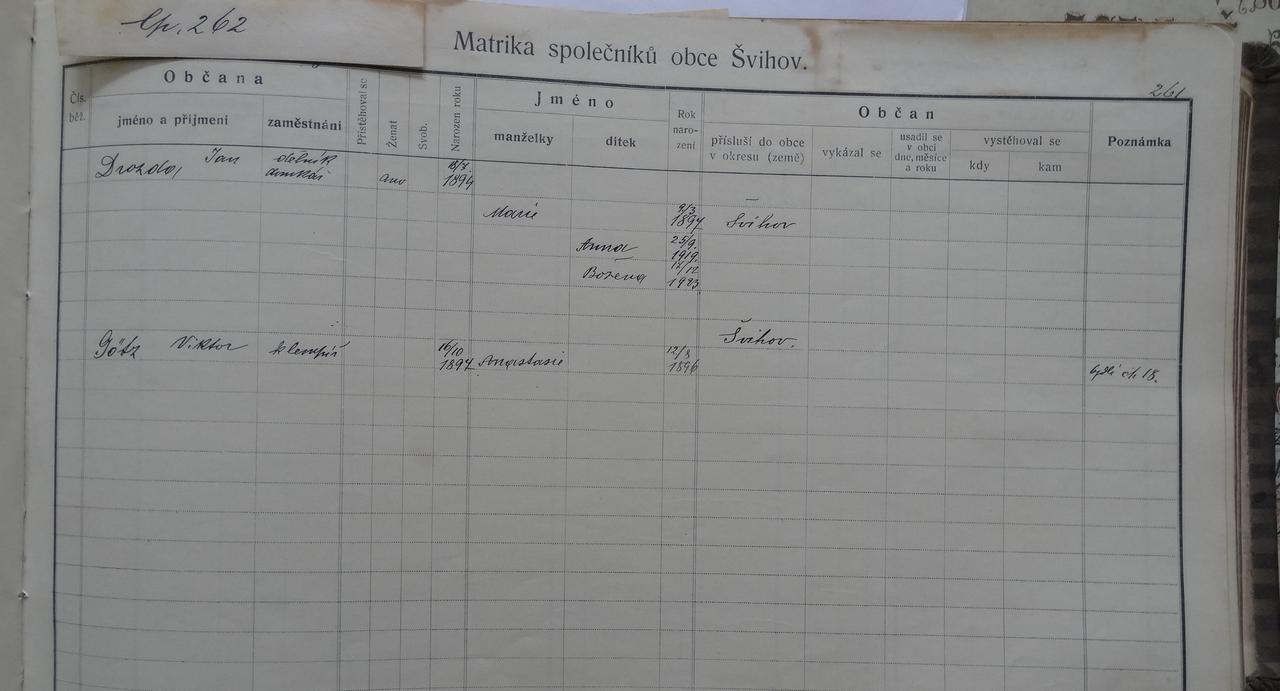 čp. 262
Matrika společníků obce Švihov.
261
Čís. běž.
Občana
jméno a příjmení
zaměstnání
Přistěhoval se
Ženat
Svob.
Narozen roku
Jméno
manželky
dítek
Rok naro- zení
Občan
přísluší do obce v okresu (země)
vykázal se
usadil se v obci dne, měsíce a roku
vystěhoval se
kdy
kam
Poznámka
Drozda, Jan dělník
ano 1894
Marie 9/3 1897 Švihov
Anna 25/9. 1919.
Božena 17/12 1923
Švihov.
Götz Viktor klempíř 16/10 1897 Anastasie 12/8 1896
bydlí čp. 18.